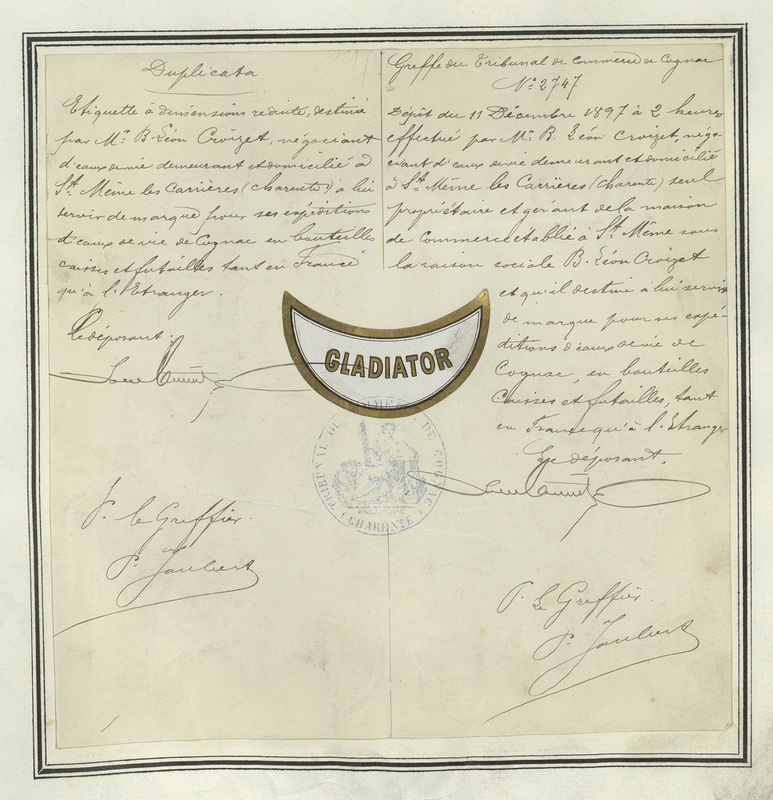 Duplicata
Etiquette à dimensions réduite, destinée
par Mr. B. Léon Croizet, négociant
d'eaux de vie demeurant et domicilié à
St. Même les Carrières (Charente) à lui
servir de marque pour ses expéditions
d'eaux de vie de Cognac en bouteilles
caisses et futailles tant en France
qu'à l'Etranger.
Le déposant.
P. le Greffier.
P. Joubert
Greffe du Tribunal de Commerce de Cognac
No. 2747
Dépôt du 11 Décembre 1897 à 2 heures
effectué par Mr. B. Léon Croizet, négo-
ciant d'eaux de vie demeurant et domicilié
à St. Même les Carrières (Charente) seul
propriétaire et gérant de la maison
de Commerce établie à St. Même sous
la raison sociale B. Léon Croizet
et qu'il destine à lui servir
de marque pour ses expé-
ditions d'eaux de vie de
Cognac, en bouteilles
Caisses et futailles, tant
en France qu'à l'Etranger
Le déposant.
P. Le Greffier.
P. Joubert
GLADIATOR
TRIBUNAL DE COMMERCE DE COGNAC
(CHARENTE)